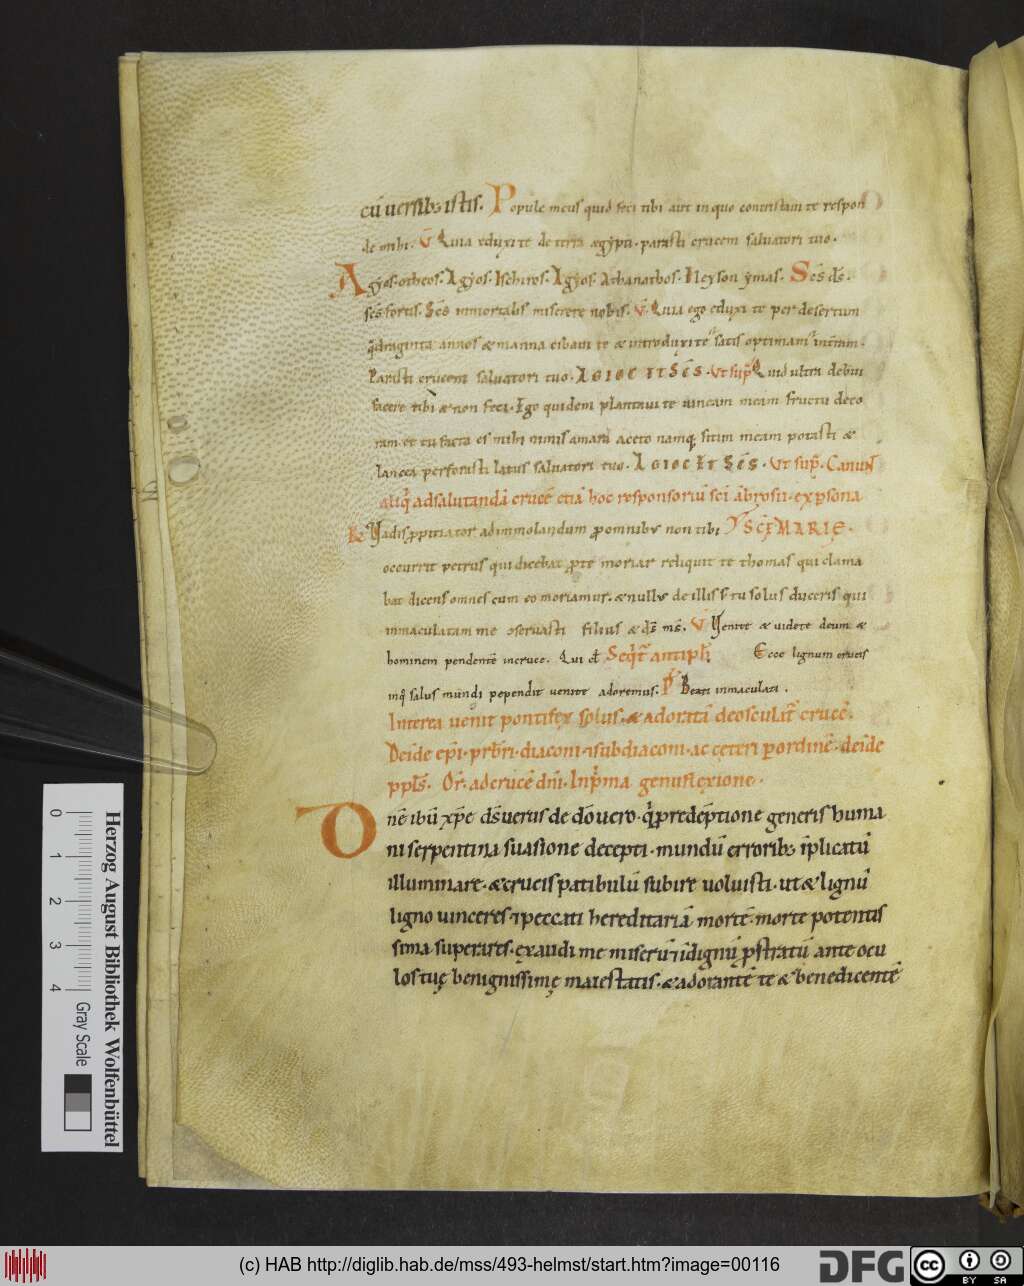 cū uersib; istis. Popule meus quid feci tibi aut in quo contristaui te respon
de mihi. V Quia eduxi te de terra ægypti. parasti crucem saluatori tuo.
Agyos. otheos. Agyos. Ischiros. Agyos. Athanathos. Eleyson ymas. Scs ds.
scs fortis. Scs inmortalis miserere nobis. V. Quia ego eduxi te per desertum
q̄draginta annos & manna cibaui te & introduxi te satis optimam
Parasti crucem saluatori tuo. AGIOC ET SCS. Vt sup̄ Quid ultra debui
facere tibi & non feci. Ego quidem plantaui te uineam meam fructu deco
ram et tu facta es mihi nimis amara aceto namq; sitim meam potasti &
lancea perforasti latus saluatori tuo. AGIOC ET SCS. Vt sup̄. Canunt
aliq̄ ad salutandā crucē etiā hoc responsoriū sci ābrosii. ex psona
R Vadis ppitiator ad immolandum p omnibus non tibi SCE MARIE.
occurrit petrus qui dicebat p te moriar reliquit te thomas qui clama
bat dicens omnes cum eo moriamur. & nullus de illis s; tu solus duceris qui
inmaculatam me conseruasti filius & ds ms. V Venite & uidete deum &
hominem pendentē in cruce. Qui Seqt̄ antiph̄ Ecce lignum crucis
in q̄ salus mundi pependit uenite adoremus. Ps Beati inmaculati.
Interea uenit pontifex solus. & adoratā deosculat̄ crucē.
Deīde ep̄i. prb̄ri. diaconi. ⁊ subdiaconi. ac ceteri p ordinē. deīde
ppl̄s. Or. ad crucē dnī. In pma genuflexione.
Dnē ihū xp̄e ds̄ uerus de dō uero. q̄ p redēptione generis huma
ni serpentina suasione decepti. mundū errorib; īplicatū
illuminare. & crucis patibulū subire uoluisti. ut & lignū
ligno uinceres ⁊ peccati hereditariā mortē. morte potentis
sima superares. exaudi me miserū ⁊ īdignū pstratū ante ocu
los tuę benignissimę maiestatis. & adorantē te & benedicentē
0 1 2 3 4
Gray Scale
Herzog August Bibliothek Wolfenbüttel
(c) HAB http://diglib.hab.de/mss/493-helmst/start.htm?image=00116
DFG
cc
BY SA